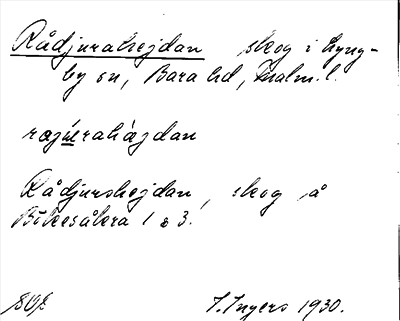 Rådjurahejdan skog i Lyng-
by sn, Bara hd, Malm. l.
rægúrahàgdan
Rådjurshejdan, skog å
Bökesåkra 1 & 3.
I. Ingers 1930.